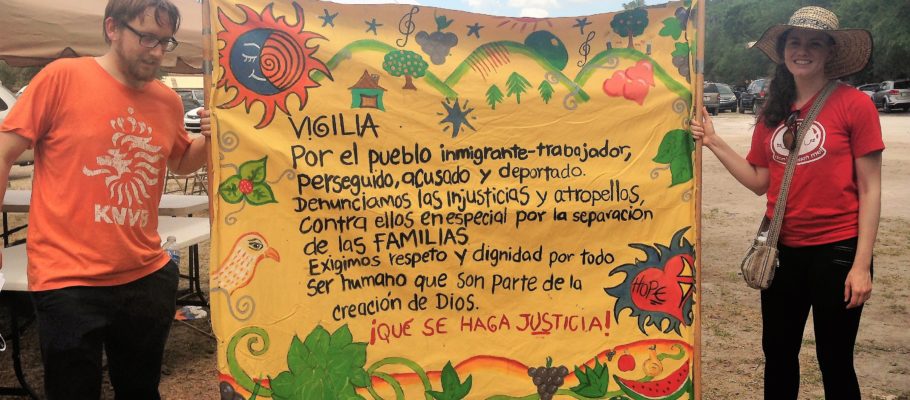 VIGILIA
Por el pueblo inmigrante-trabajador,
perseguido, acusado y deportado.
Denunciamos las injusticias y atropellos,
contra ellos en especial por la separación
de las FAMILIAS
Exigimos respeto y dignidad por todo
ser humano que son parte de la
creación de Dios.
¡QUE SE HAGA JUSTICIA!
HOPE
KNVB